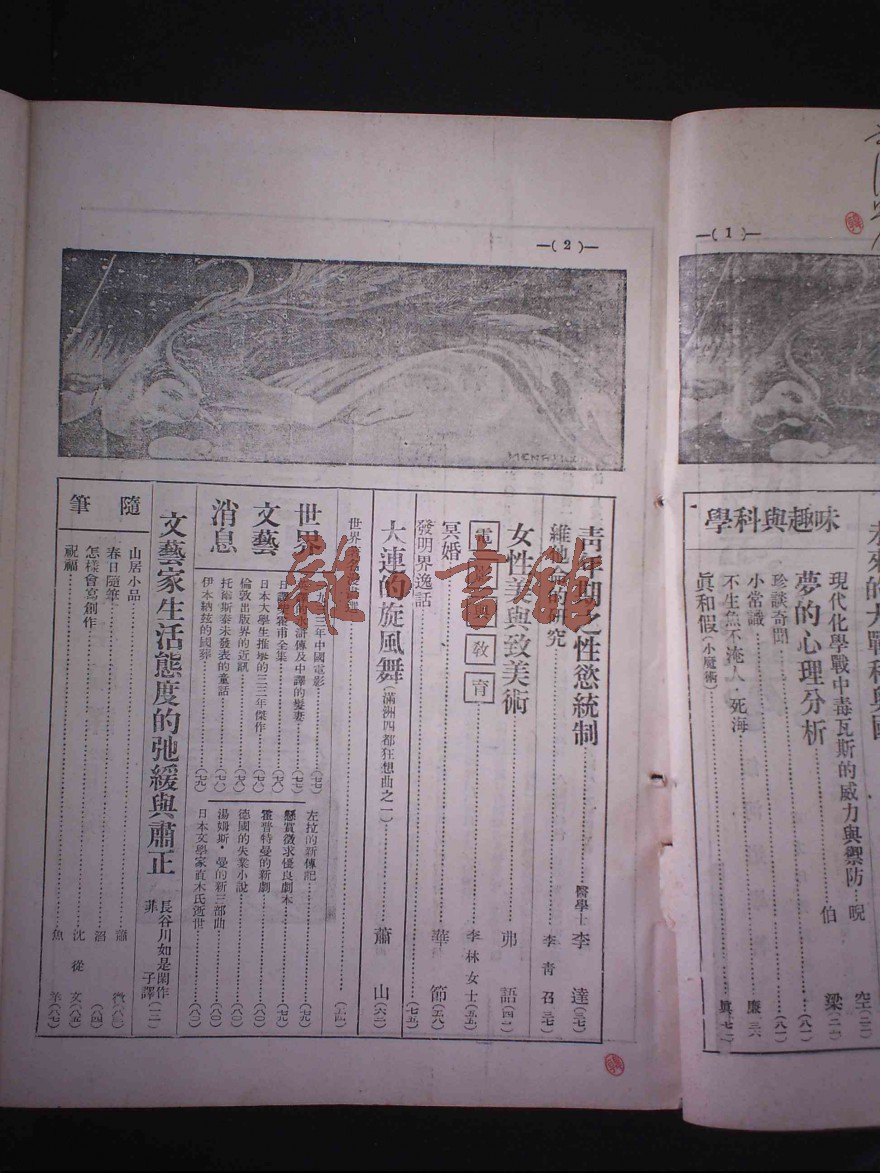 —( 1 )—
未來的大戰和與國
現代化學戰中毒瓦斯的威力與禦防 睨空
夢的心理分析 伯梁
珍談奇聞 (八一)
小常識 廉
不生魚不淹人・死海
眞和假(小魔術)
學科與趣味
—( 2 )—
青年期之性慾統制 醫學士 李達(三七)
維他 的研究 李青召
女性美與致美術 弗語
教育 李林女士(五五)
冥婚 華節(五八)
發明界逸話 (七五)
大連的旋風舞(滿洲四都狂想曲之一) 蕭山(六三)
世界
世界文藝消息
三年中國電影 (七七)
水滸傳及中譯的髮妻 (七七)
日譯 霍甫全集 (七八)
日本大學生推擧的三三年傑作 (七八)
倫敦出版界的近訊 (七八)
托爾斯泰未發表的童話 (七八)
伊本納玆的國葬 (七九)
左拉的新傳記 (七九)
懸賞徵求優良劇本 (七九)
霍普特曼的新劇 (八〇)
德國的失業小說 (八〇)
湯姆斯・曼的新三部曲 (八〇)
日本文學家直木氏逝世 (八〇)
文藝家生活態度的弛緩與肅正 長谷川如是閑作 菲子譯
隨筆
山居小品 蕭
春日隨筆
怎樣會寫創作 沈從文(八五)
祝福 魚羊(八七)
雜書館